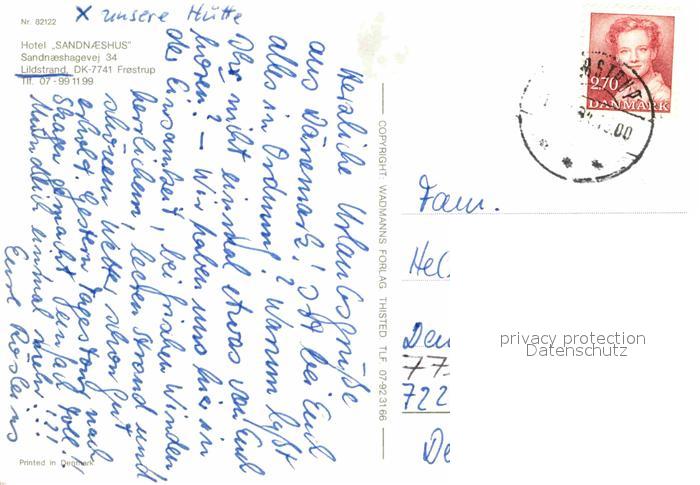 Nr. 82122
x unsere Hütte
Hotel „SANDNÆSHUS"
Sandnæshagevej 34
Lildstrand, DK-7741 Frøstrup
Tlf. 07 - 99 11 99
Herzliche Urlaubsgrüße
aus Dänemark! Ist bei Euch
alles in Ordnung? Warum laßt
Ihr nicht einmal etwas von Euch
hören? - Wir haben uns hier in
der Einsamkeit, bei frischen Winden
herrlichem, leeren Strand und
schönem Wetter schon gut
erholt. Gestern Tagestour nach
Skagen gemacht. Einfach toll!
Mündlich einmal mehr!?!
Eure
Printed in Denmark
COPYRIGHT WADMANNS FORLAG THISTED TLF 07-92 31 66
2.70
DANMARK
Fam.
Hel
Den
77
722
De
privacy protection
Datenschutz